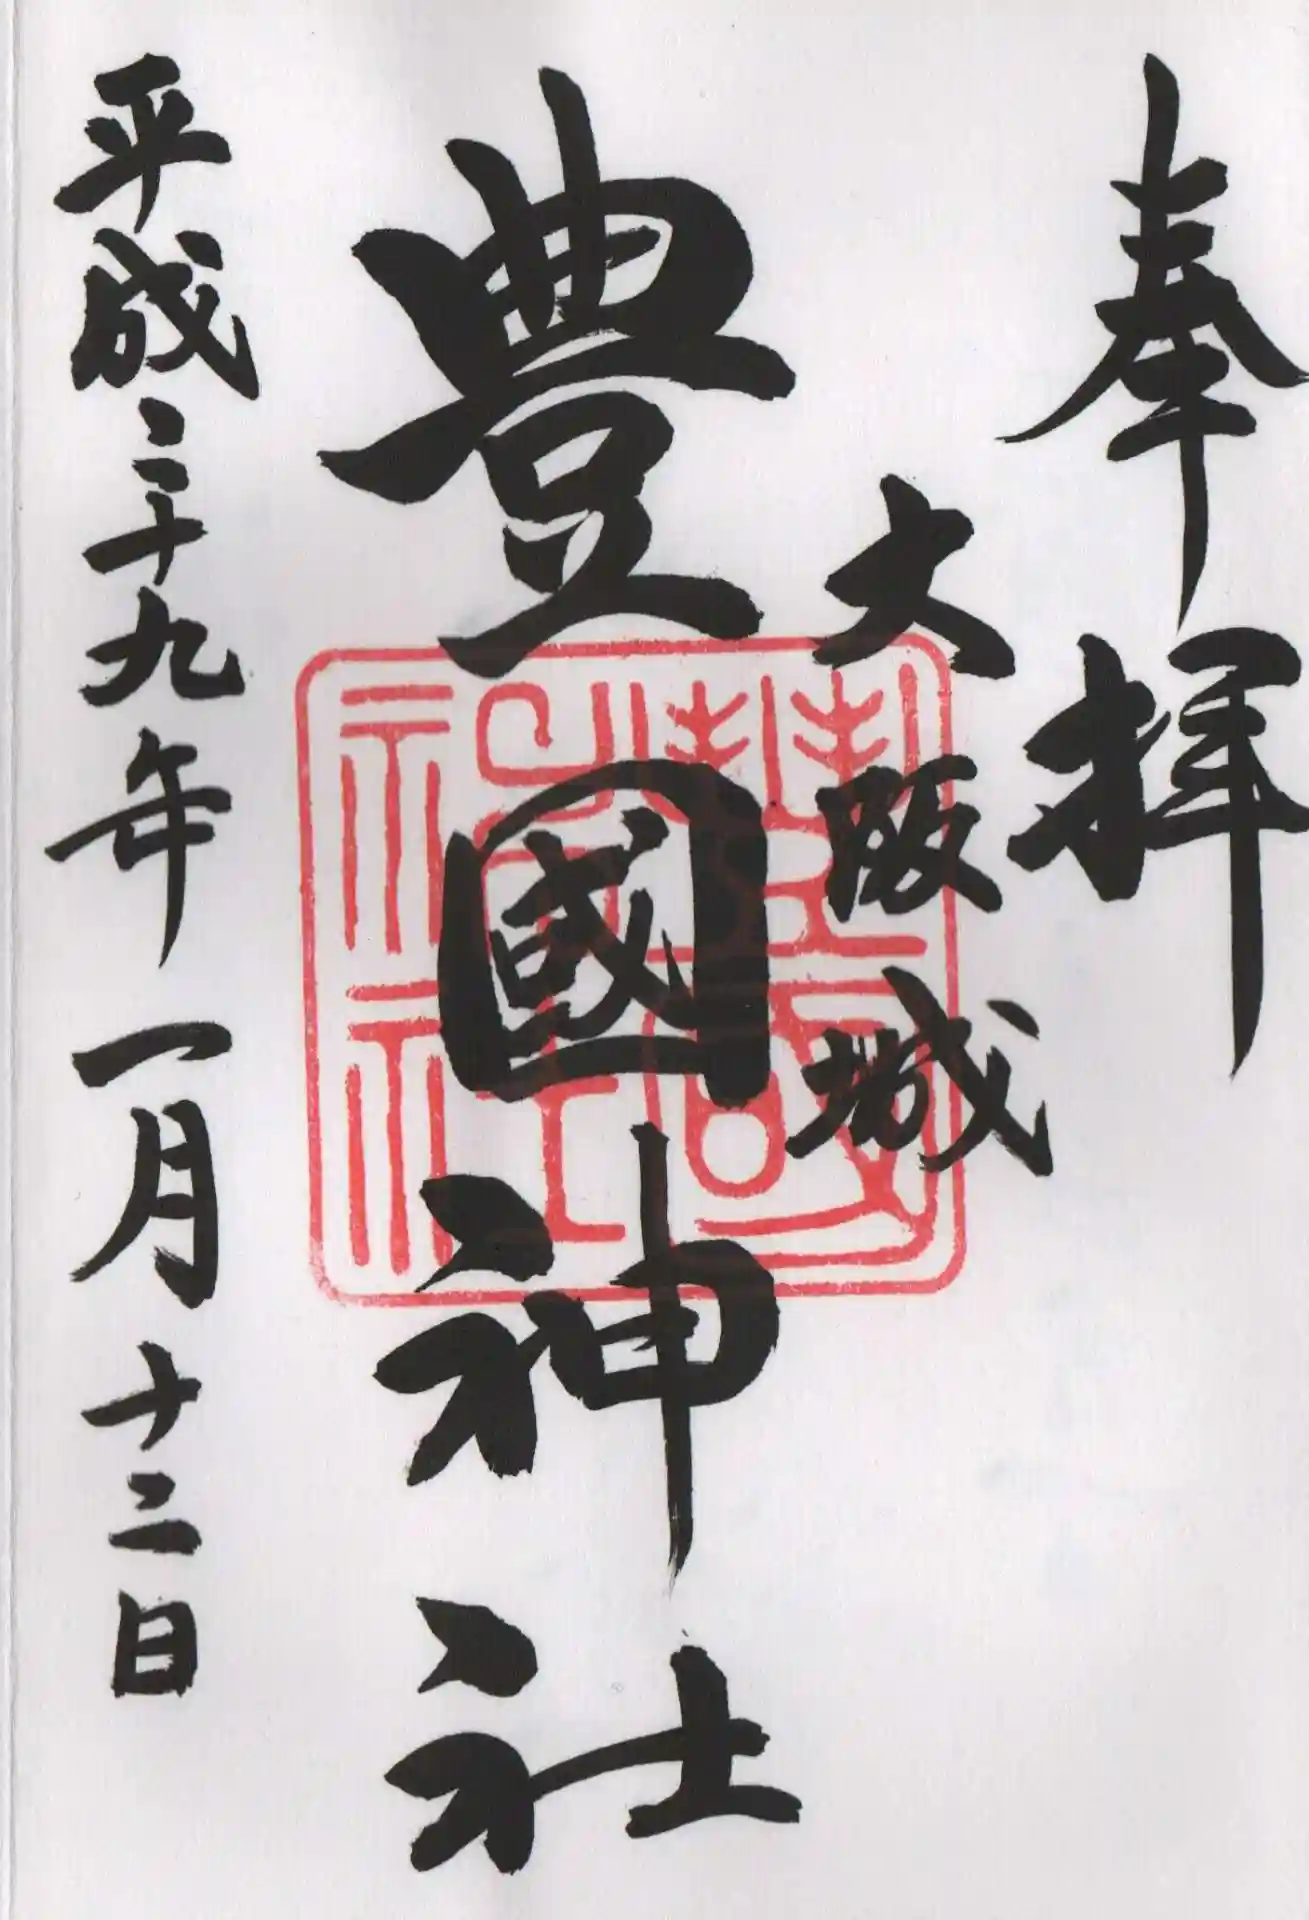 奉拝
大阪城
豊國神社
平成二十九年一月十二日
豊國神社